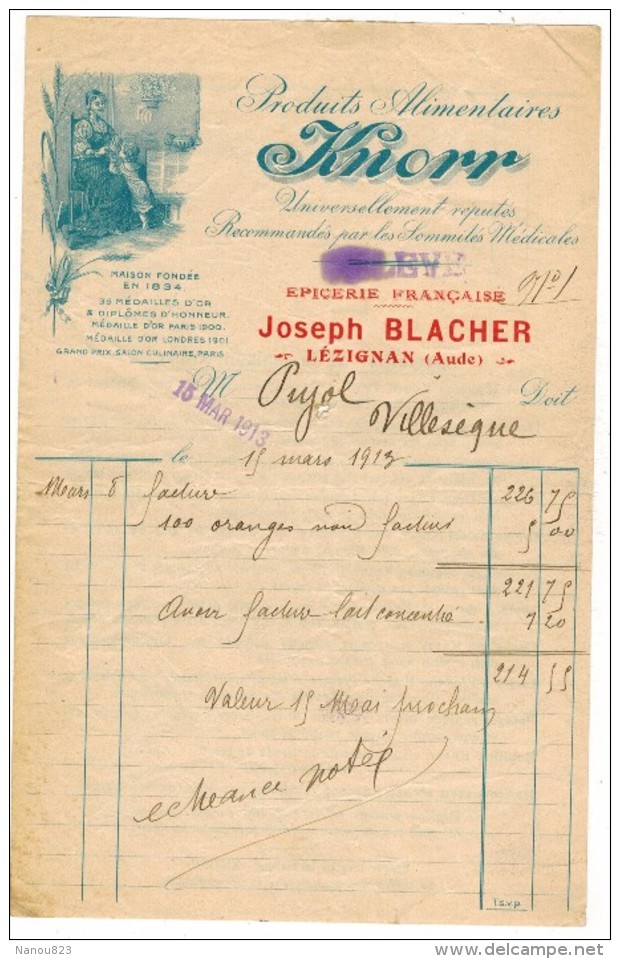 Produits Alimentaires
Knorr
Universellement réputés
Recommandés par les Sommités Médicales
MAISON FONDÉE
EN 1834.
35 MÉDAILLES D'OR
& DIPLÔMES D'HONNEUR.
MÉDAILLE D'OR PARIS 1900.
MÉDAILLE D'OR LONDRES 1901
GRAND PRIX, SALON CULINAIRE, PARIS
EPICERIE FRANÇAISE
Joseph BLACHER
LÉZIGNAN (Aude)
M Pujol Doit
Villesèque
15 MAR 1913
le 15 mars 1913
Mars 8 facture 226 75
100 oranges non facturé 5 00
221 75
Avoir facture lait concentré 7 20
214 55
Valeur 15 Mai prochain
echeance notée
T.S.V.P.
Nanou823
www.delcampe.net